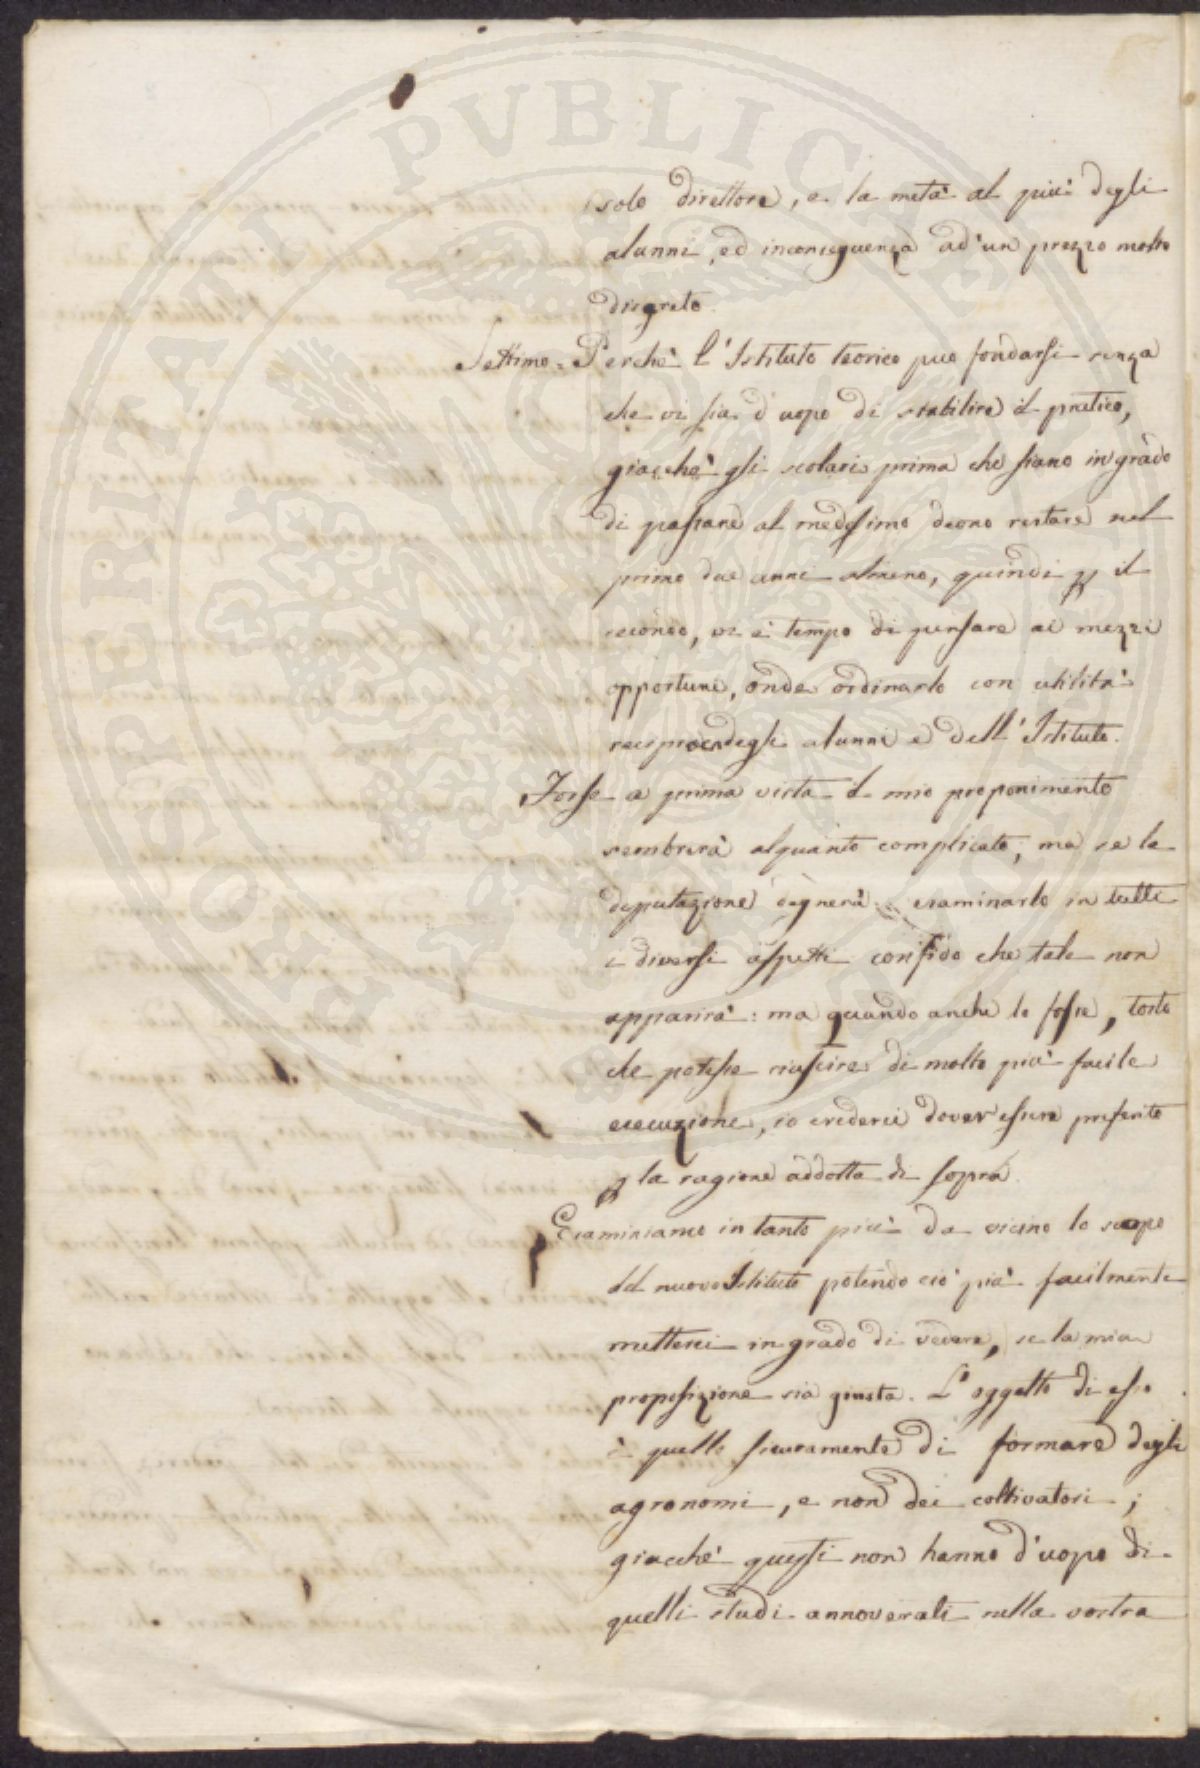 solo direttore, e la metà al più degli
alunni, ed inconseguenza ad'un prezzo molto
discreto.
Settimo = Perchè l'Istituto teorico può fondarsi senza
che vi sia d'uopo di stabilire il pratico,
giacchè gli scolari prima che siano in grado
di passare al medesimo deono restare nel
primo due anni almeno, quindi p il
secondo, vi è tempo di pensare ai mezzi
opportuni, onde ordinarlo con utilità
reciproca degli alunni e dell'Istituto.
Forse a prima vista il mio proponimento
sembrerà alquanto complicato; ma se la
deputazione degnerà esaminarlo in tutti
i diversi aspetti confido che tale non
apparirà: ma quando anche lo fosse, tosto
che potesse riuscire di molto più facile
esecuzione, io crederei dover essere preferito
p la ragione addotta di sopra.
Esaminiamo in tanto più da vicino lo scopo
del nuovo Istituto potendo ciò più facilmente
metterci in grado di vedere, se la mia
proposizione sia giusta. L'oggetto di esso
è quello sicuramente di formare degli
agronomi, e non dei coltivatori;
giacchè questi non hanno d'uopo di
quelli studi annoverati nella vostra
PROSPERITATI PUBLICAE